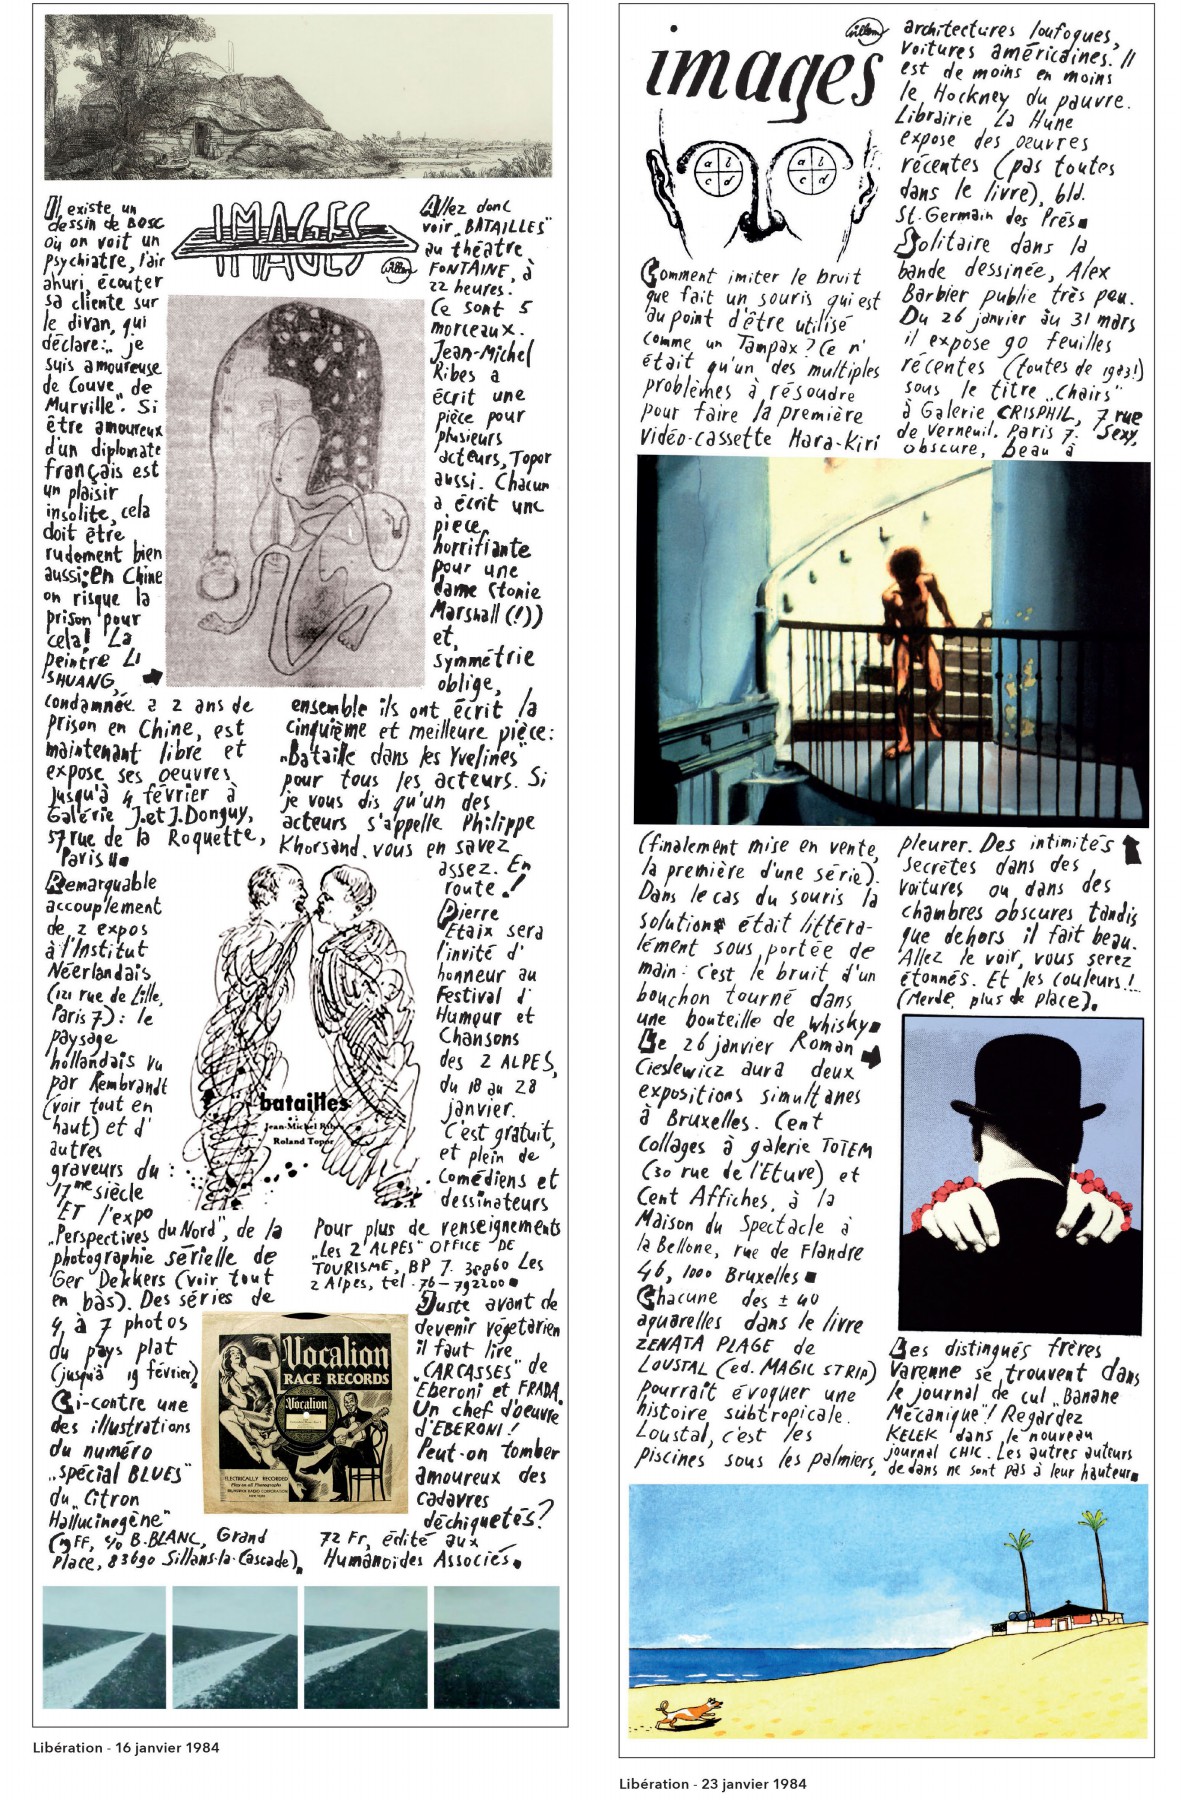 IMAGES
Willem
Il existe un
dessin de BOSC
où on voit un
psychiatre, l'air
ahuri, écouter
sa cliente sur
le divan, qui
déclare: „je
suis amoureuse
de Couve de
Murville". Si
être amoureux
d'un diplomate
français est
un plaisir
insolite, cela
doit être
rudement bien
aussi: en Chine
on risque la
prison pour
cela! La
peintre LI
SHUANG,
condamnée a 2 ans de
prison en Chine, est
maintenant libre et
expose ses oeuvres
jusqu'à 4 février à
Galérie J. et J. Donguy,
57 rue de la Roquette,
Paris 11
Remarquable
accouplement
de 2 expos
à l'Institut
Néerlandais
(121 rue de Lille,
Paris 7): le
paysage
hollandais vu
par Rembrandt
(voir tout en
haut) et d'
autres
graveurs du
17me siècle
ET l'expo
„Perspectives du Nord", de la
photographie sérielle de
Ger Dekkers (voir tout
en bàs). Des séries de
4 à 7 photos
du pays plat
(jusquà 19 février).
Ci-contre une
des illustrations
du numéro
„spécial BLUES"
du „Citron
Hallucinogène"
(19FF, c/o B. BLANC, Grand
Place, 83690 Sillans-la-Cascade).
Allez donc
voir „BATAILLES"
au théatre
FONTAINE, à
22 heures.
Ce sont 5
morceaux.
Jean-Michel
Ribes a
écrit une
pièce pour
plusieurs
acteurs, Topor
aussi. Chacun
a écrit une
piece
horrifiante
pour une
dame (Tonie
Marshall (!))
et,
symmétrie
oblige,
ensemble ils ont écrit la
cinquième et meilleure pièce:
„Bataille dans les Yvelines"
pour tous les acteurs. Si
je vous dis qu'un des
acteurs s'appelle Philippe
Khorsand, vous en savez
assez. En
route!
Pierre
Etaix sera
l'invité d'
honneur au
Festival d'
Humour et
Chansons
des 2 ALPES,
du 18 au 28
janvier.
C'est gratuit,
et plein de
Comédiens et
dessinateurs
Pour plus de renseignements
„Les 2 ALPES" OFFICE DE
TOURISME, BP 7. 38860 Les
2 Alpes, tél. 76-792200
Juste avant de
devenir végetarien
il faut lire
„CARCASSES" de
Eberoni et FRADA.
Un chef d'oeuvre
d'EBERONI!
Peut-on tomber
amoureux des
cadavres
déchiquetés?
72 Fr, édité aux
Humanoïdes Associés.
batailles
Jean-Michel Ribes
Roland Topor
Vocalion
RACE RECORDS
Vocalion
ELECTRICALLY RECORDED
Libération - 16 janvier 1984
images
Willem
a b
c d
a b
c d
Comment imiter le bruit
que fait un souris qui est
au point d'être utilisé
comme un Tampax? Ce n'
était qu'un des multiples
problèmes à résoudre
pour faire la première
vidéo-cassette Hara-Kiri
(finalement mise en vente,
la première d'une série).
Dans le cas du souris la
solution était littéra-
lément sous portée de
main: c'est le bruit d'un
bouchon tourné dans
une bouteille de whisky
Le 26 janvier Roman
Cieslewicz aura deux
expositions simultanes
à Bruxelles. Cent
Collages à galerie TOTEM
(30 rue de l'Etuve) et
Cent Affiches, à la
Maison du Spectacle à
la Bellone, rue de Flandre
46, 1000 Bruxelles
Chacune des ± 40
aquarelles dans le livre
ZENATA PLAGE de
LOUSTAL (ed. MAGIC STRIP)
pourrait évoquer une
histoire subtropicale.
Loustal, c'est les
piscines sous les palmiers,
architectures loufoques,
voitures américaines. Il
est de moins en moins
le Hockney du pauvre.
Librairie La Hune
expose des oeuvres
récentes (pas toutes
dans le livre), bld.
St. Germain des Prés
Solitaire dans la
bande dessinée, Alex
Barbier publie très peu.
Du 26 janvier au 31 mars
il expose 90 feuilles
récentes (toutes de 1983!)
sous le titre „Chairs"
à Galerie CRISPHIL, 7 rue
de Verneuil, Paris 7. Sexy,
obscure, beau à
pleurer. Des intimités
secrètes dans des
voitures ou dans des
chambres obscures tandis
que dehors il fait beau.
Allez le voir, vous serez
étonnés. Et les couleurs!..
(Merde, plus de place).
Les distingués frères
Varenne se trouvent dans
le journal de cul „Banane
Mécanique"! Regardez
KELEK dans le nouveau
journal CHIC. Les autres auteurs
dedans ne sont pas à leur hauteur
Libération - 23 janvier 1984